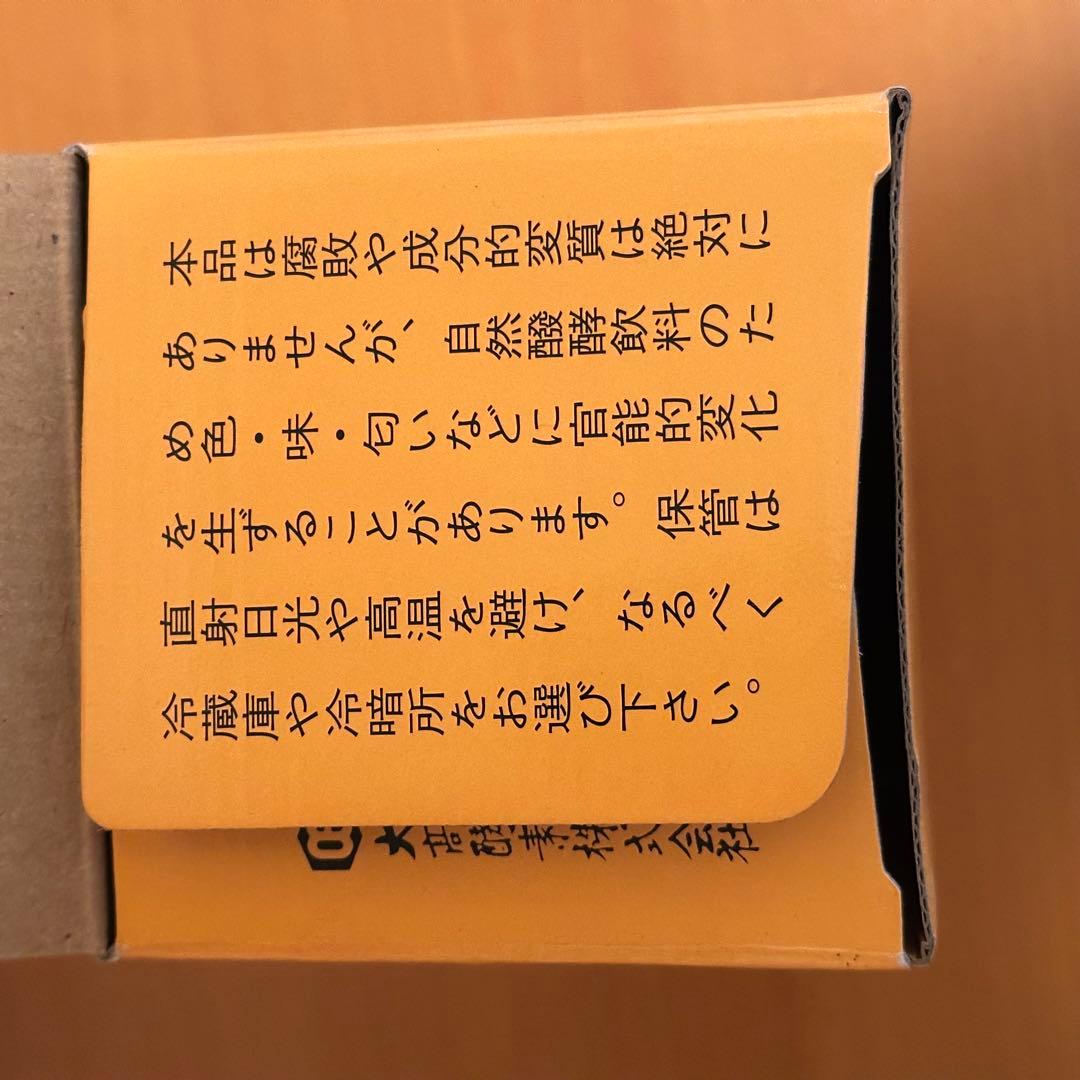 本品は腐敗や成分的変質は絶対に
ありませんが、自然醱酵飲料のた
め色・味・匂いなどに官能的変化
を生ずることがあります。保管は
直射日光や高温を避け、なるべく
冷蔵庫や冷暗所をお選び下さい。
大高酵素株式会社